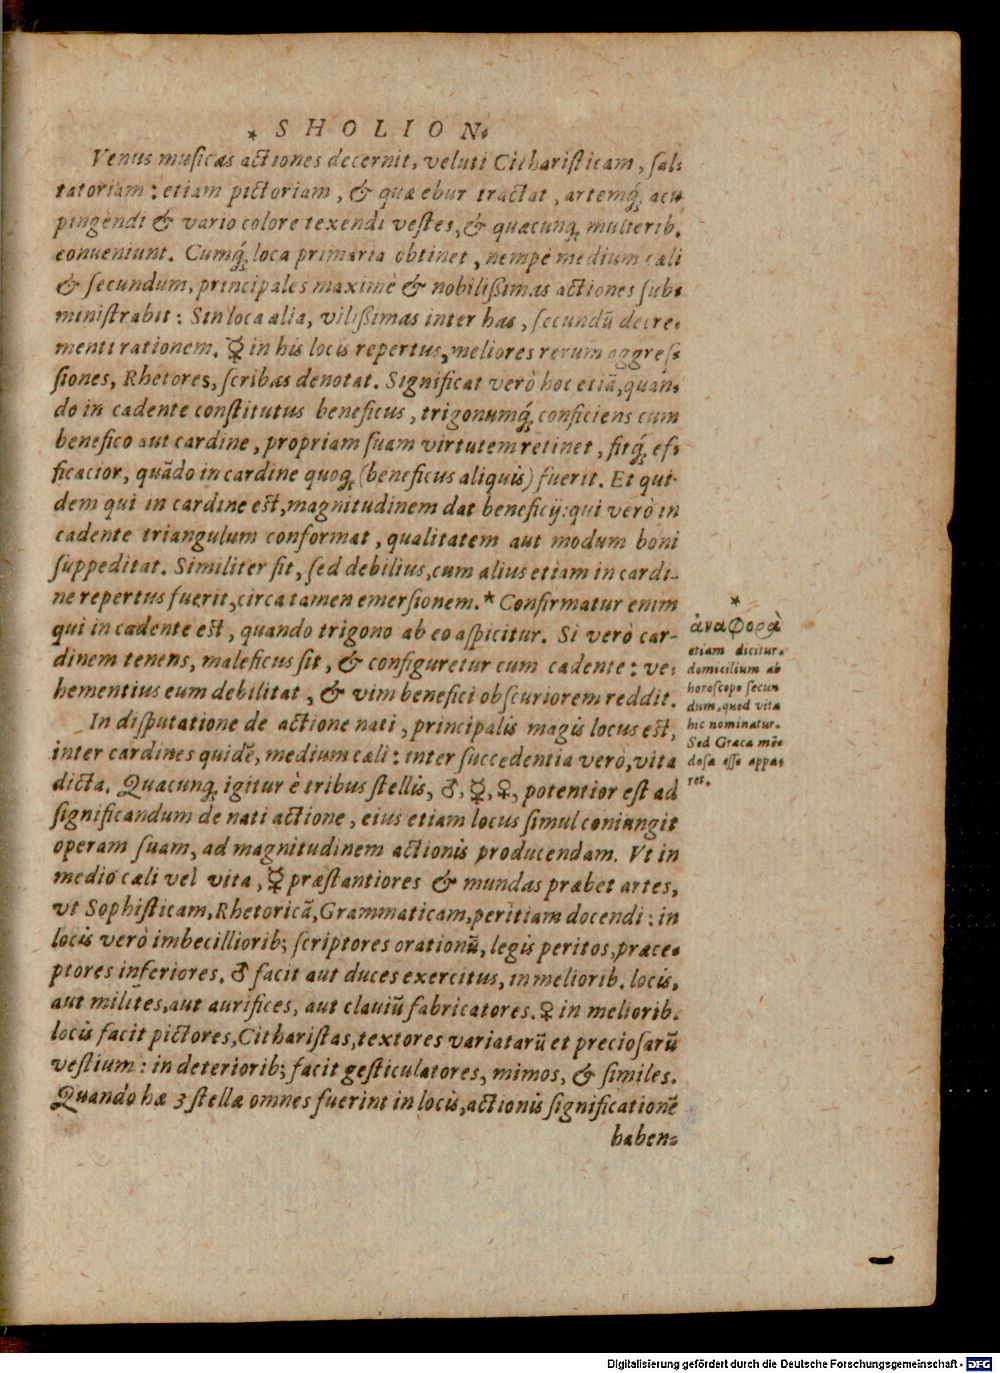 * SHOLION.
Venus musicas actiones decernit, veluti Citharisticam, sal-
tatoriam: etiam pictoriam, & quæ ebur tractat, artemq́; acu
pingendi & vario colore texendi vestes, & quacunq; mulierib.
conueniunt. Cumq́; loca primaria obtinet, nempe medium cæli
& secundum, principales maximè & nobilißimas actiones sub-
ministrabit: Sin loca alia, vilißimas inter has, secundū decre-
menti rationem. ☿ in his locis repertus, meliores rerum aggres-
siones, Rhetores, scribas denotat. Significat verò hoc etiā, quan-
do in cadente constitutus beneficus, trigonumq́; conficiens cum
benefico aut cardine, propriam suam virtutem retinet, fitq́; ef-
ficacior, quādo in cardine quoq; (beneficus aliquis) fuerit. Et qui-
dem qui in cardine est, magnitudinem dat beneficij: qui verò in
cadente triangulum conformat, qualitatem aut modum boni
suppeditat. Similiter fit, sed debilius, cum alius etiam in cardi-
ne repertus fuerit, circa tamen emersionem.* Confirmatur enim
qui in cadente est, quando trigono ab eo aspicitur. Si verò car-
dinem tenens, maleficus sit, & configuretur cum cadente: ve-
hementius eum debilitat, & vim benefici obscuriorem reddit.
In disputatione de actione nati, principalis magis locus est,
inter cardines quidē, medium cæli: inter succedentia verò, vita
dicta. Quacunq; igitur è tribus stellis, ♂, ☿, ♀, potentior est ad
significandum de nati actione, eius etiam locus simul coniungit
operam suam, ad magnitudinem actionis producendam. Vt in
medio cæli vel vita, ☿ præstantiores & mundas præbet artes,
vt Sophisticam, Rhetoricā, Grammaticam, peritiam docendi: in
locis verò imbecilliorib; scriptores orationū, legis peritos, præce-
ptores inferiores. ♂ facit aut duces exercitus, in meliorib. locis,
aut milites, aut aurifices, aut clauiū fabricatores. ♀ in meliorib.
locis facit pictores, Citharistas, textores variatarū et preciosarū
vestium: in deteriorib; facit gesticulatores, mimos, & similes.
Quando hæ 3 stellæ omnes fuerint in locis, actionis significationē
haben-
*
ἀναφορὰ
etiam dicitur
domicilium ab
horoscopo secun
dum, quod vita
hic nominatur.
Sed Græca mē-
dosa esse appa-
ret.
Digitalisierung gefördert durch die Deutsche Forschungsgemeinschaft - DFG